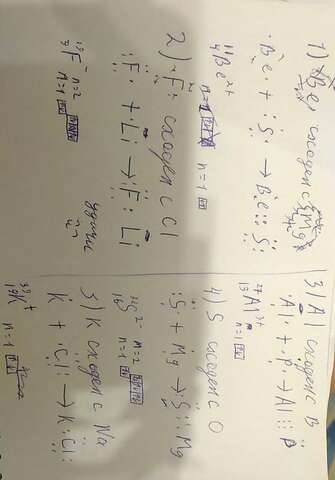 1) Be сходен с Mg
·Be· + :S: → Be::S:
¹¹₄Be²⁺
n=1
2) ·F: сходен с Cl
:F· + ·Li → :F:Li
¹⁹₉F⁻ n=2
n=1
3) Al сходен с B
·Al· + ·P· → Al:::P
²⁷₁₃Al³⁺
n=1
4) S сходен с O
:S: + Mg → :S::Mg
³²₁₆S²⁻ n=2
n=1
5) K сходен с Na
K + ·Cl: → K:Cl:
³⁹₁₉K⁺
n=1